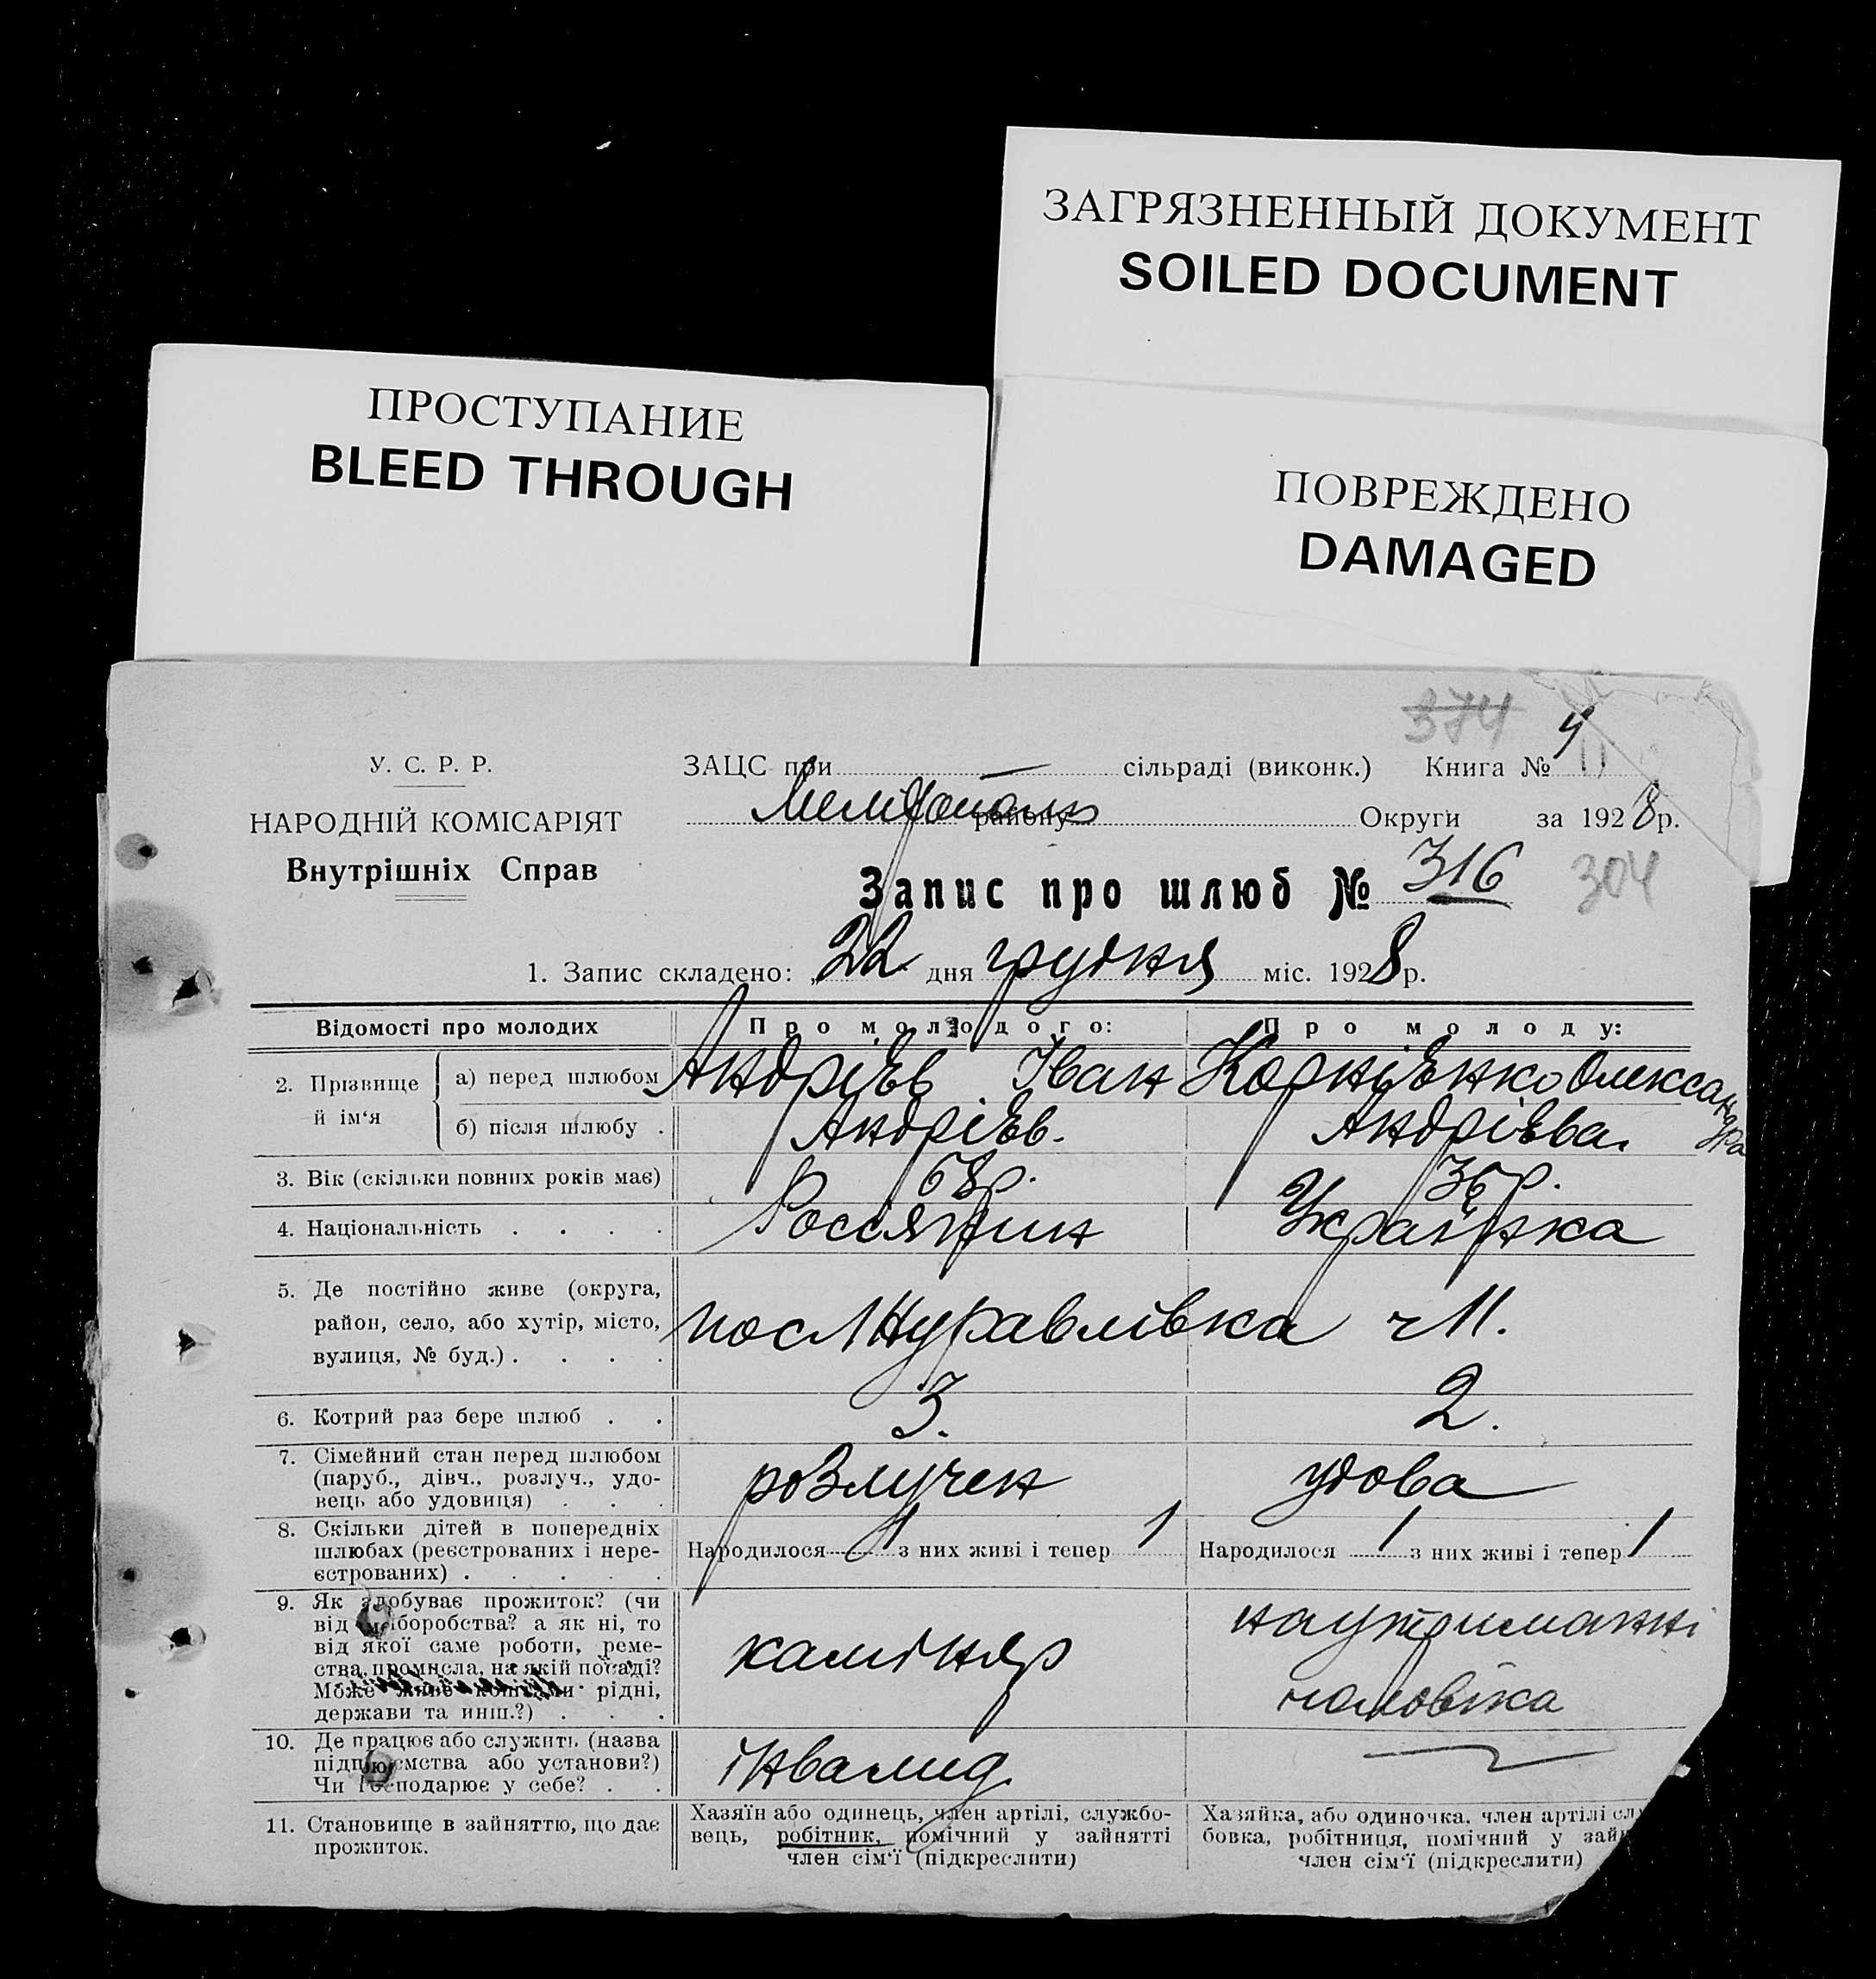 ЗАГРЯЗНЕННЫЙ ДОКУМЕНТ
SOILED DOCUMENT
ПРОСТУПАНИЕ
BLEED THROUGH
ПОВРЕЖДЕНО
DAMAGED
374
У. С. Р. Р.
НАРОДНІЙ КОМІСАРІЯТ
Внутрішніх Справ
ЗАЦС при — сільраді (виконк.) Книга № 11
району Округи за 1928 р.
Запис про шлюб № 316 304
1. Запис складено: „22 дня грудня міс. 1928 р.
Відомості про молодих Про молодого: Про молоду:
2. Прізвище й ім‘я
а) перед шлюбом Андріѣв Іван Корніѣнко Олександра
б) після шлюбу . Андріѣв. Андріѣва.
3. Вік (скільки повних років має) 68 р. 36 р.
4. Національність . . . . Россіянин Украінка
5. Де постійно живе (округа,
район, село, або хутір, місто,
вулиця, № буд.) . . . .
пос Журавлівка ч 11.
6. Котрий раз бере шлюб . . 3. 2.
7. Сімейний стан перед шлюбом
(паруб., дівч., розлуч., удо-
вець або удовиця) . . .
розлучен удова
8. Скільки дітей в попередніх
шлюбах (реєстрованих і нере-
єстрованих) . . . . .
Народилося 1 з них живі і тепер 1 Народилося 1 з них живі і тепер 1
9. Як здобуває прожиток? (чи
від хліборобства? а як ні, то
від якої саме роботи, реме-
ства, промисла, на якій посаді?
Може живе коштами рідні,
держави та инш.?) . . .
каміняр
на утриманні
чоловіка
10. Де працює або служить (назва
підприємства або установи?)
Чи господарює у себе? . .
інвалид
11. Становище в зайняттю, що дає
прожиток.
Хазяїн або одинець, член артілі, службо-
вець, робітник, помічний у зайнятті
член сім‘ї (підкреслити)
Хазяйка, або одиночка, член артілі
бовка, робітниця, помічний у
член сім‘ї (підкреслити)